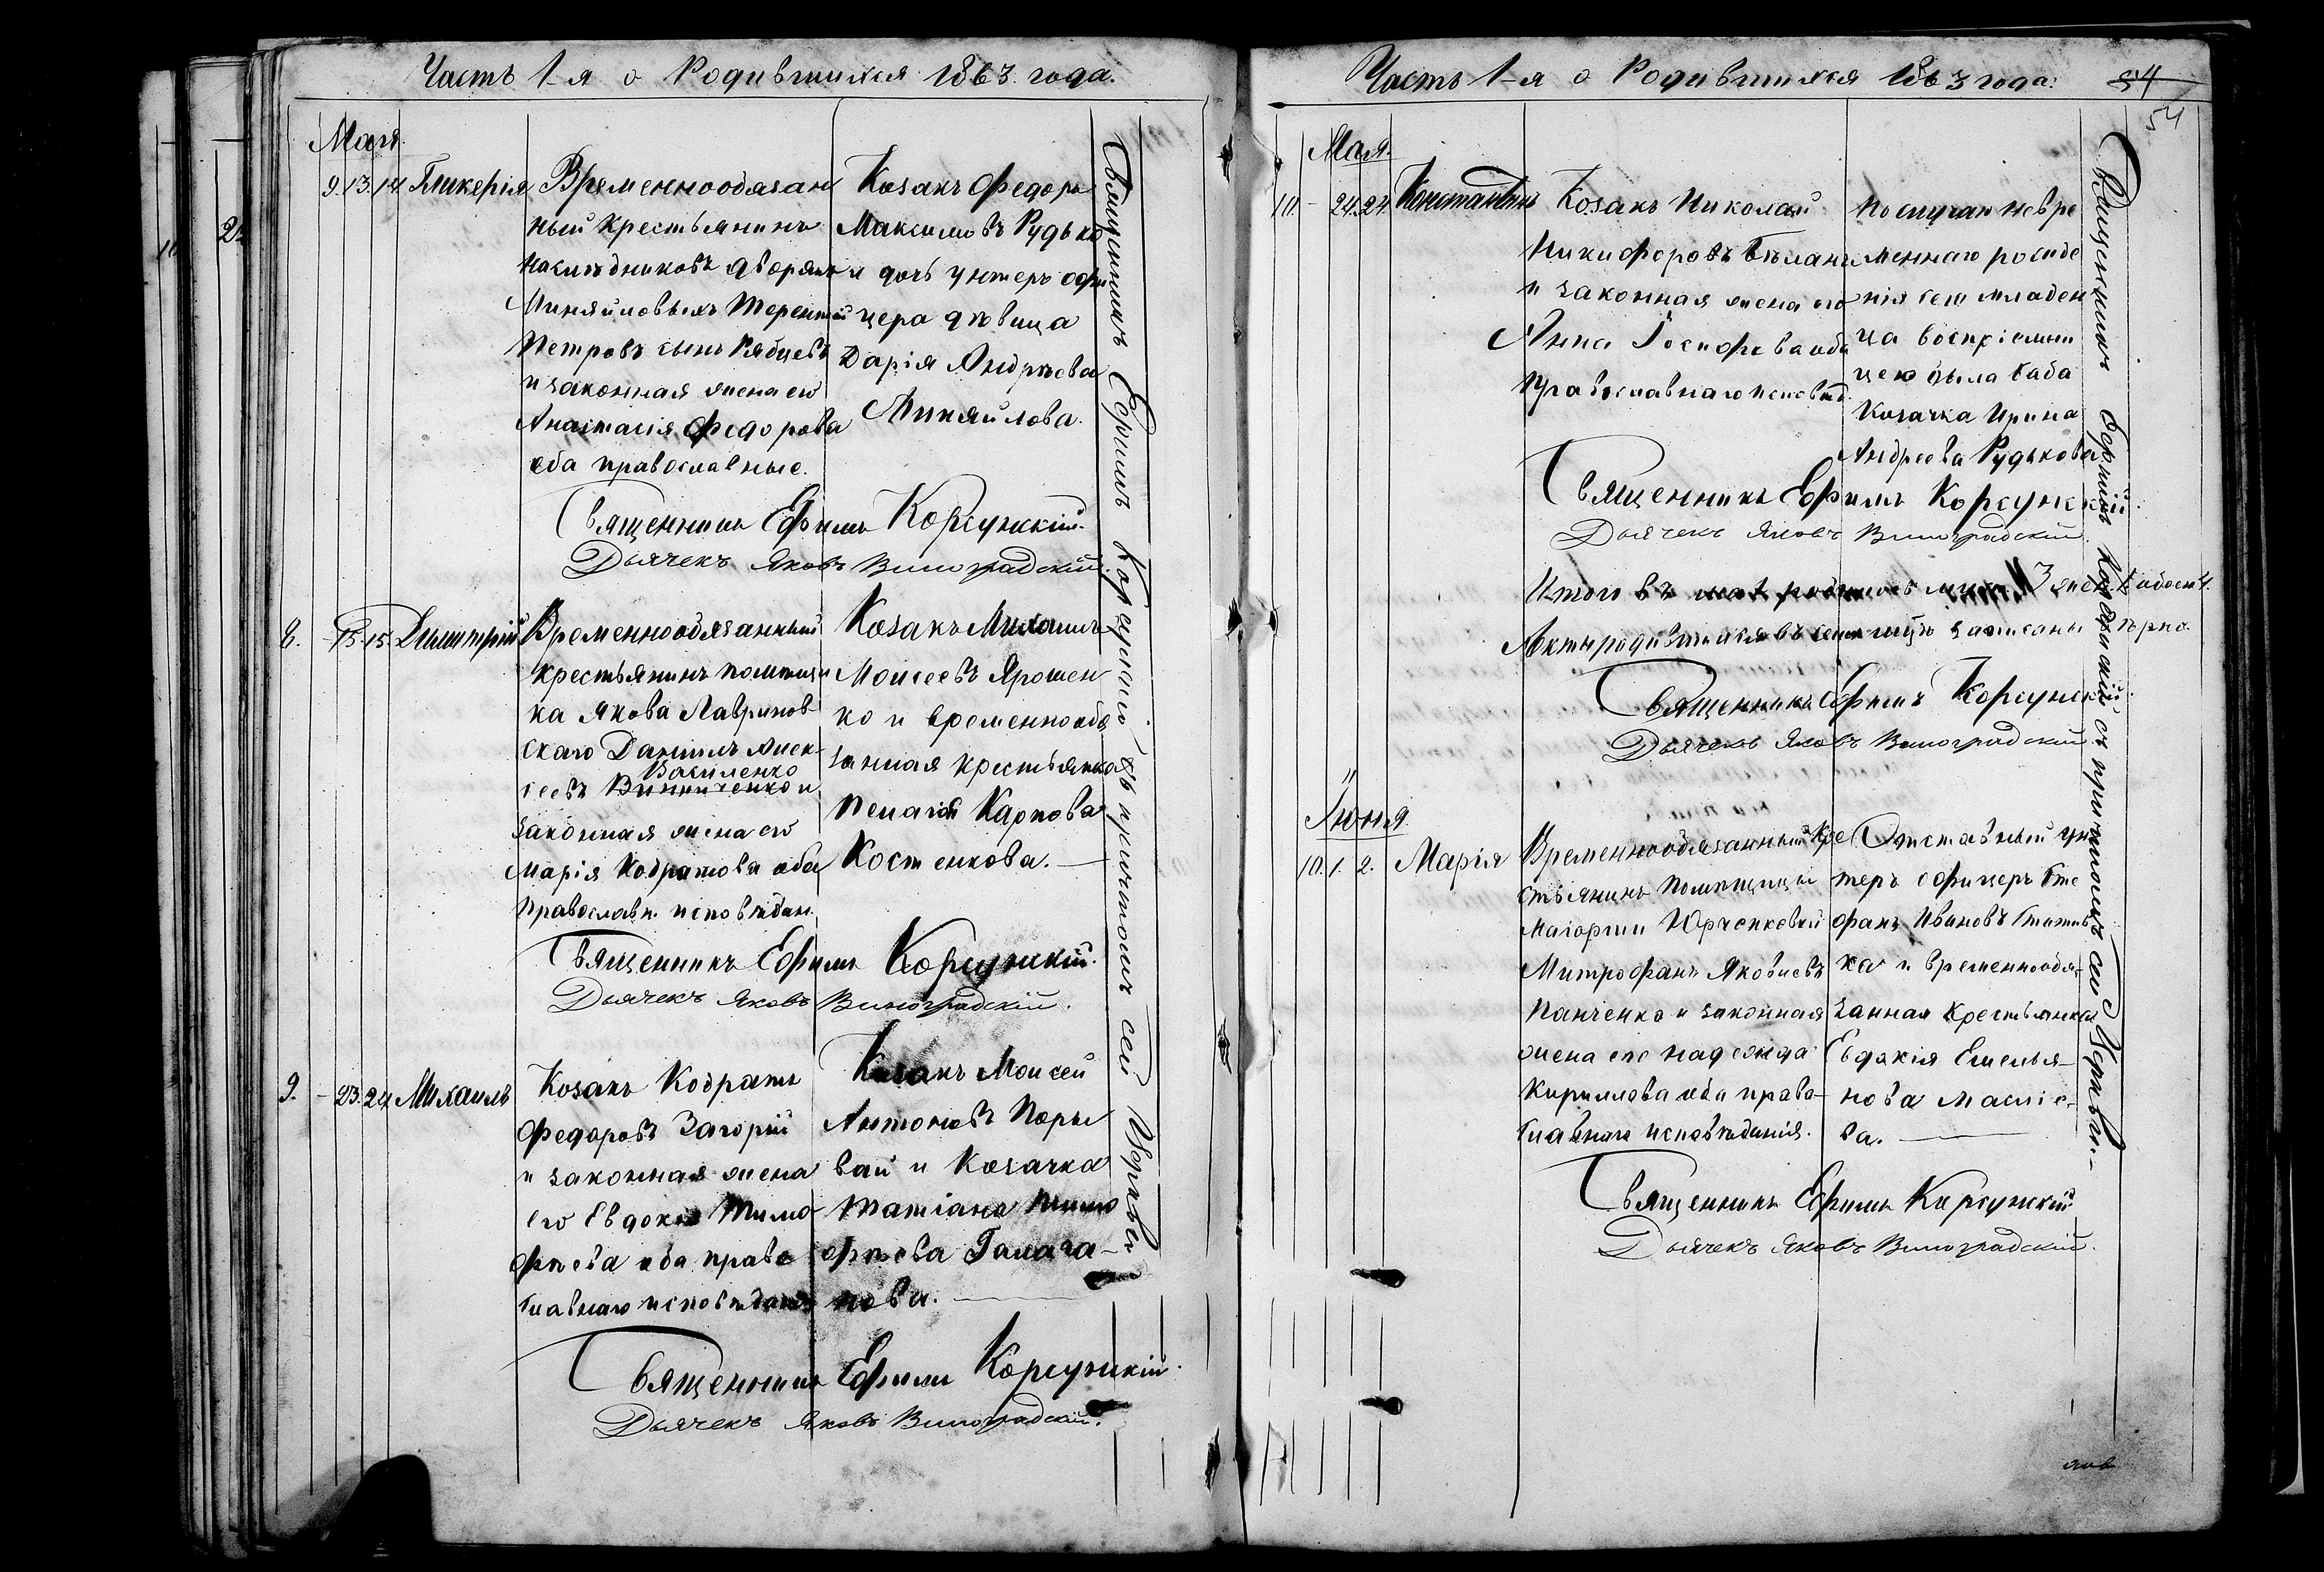 Часть 1-я о Родившихся 1863 года.
Мая
9. 13. 14 Гликерія
Временнообязан
ный крестьянинъ
наслѣдниковъ дворянъ
Миняйловыхъ Терентій
Петровъ сынъ Рябцевъ
и законная жена его
Анастасія Федорова
оба православные.
Козакъ Федоръ
Максимовъ Рудько
и дочь унтеръ офи
цера дѣвица
Дарія Андрѣева
Миняйлова.
Священникъ Ефимъ Корсунскій.
Дьячекъ Яковъ Виноградскій.
8. - 15. 15. Димитрій
Временнообязанный
крестьянинъ помѣщи
ка Якова Лавринов-
скаго Даніилъ Алек-
Василенко
сеевъ Винниченко и
законная жена его
Марія Кодратова оба
православн. исповѣдан.
Козакъ Михаилъ
Моисеевъ Ярошен
ко и временнообя
занная крестьянка
Пелагія Карпова
Костенкова.
Священникъ Ефимъ Корсунскій.
Дьячекъ Яковъ Виноградскій.
9. - 23. 24 Михаилъ
Козакъ Кодратъ
Федоровъ Загорій
и законная жена
его Евдокія Тимо
фѣева оба право
славнаго исповѣданія
Козакъ Моисей
Антоновъ Поры
вай и Козачка
Татіана Тимо
фѣева Галага-
нова.
Священникъ Ефимъ Корсунскій.
Дьячекъ Яковъ Виноградскій.
Священникъ Ефимъ Корсунскій съ причтомъ сей Церкви
Часть 1-я о Родившихся 1863 года.
54
54
Мая.
10. - 24. 24. Константинъ
Козакъ Николай
Никифоровъ Бѣланъ
и законная жена его
Анна Іосифова оба
православнаго исповѣд.
По случаю невре
меннаго рожде
нія сего младен
ца воспріемни
цею была баба
Козачка Ирина
Андреева Рудькова
Священникъ Ефимъ Корсунскій.
Дьячекъ Яковъ Виноградскій.
Итого въ маѣ родилось муж. 3 жен. 1 обоего 4.
Акты родившихся въ семъ мцѣ записаны вѣрно.
Священникъ Ефимъ Корсунскій.
Дьячекъ Яковъ Виноградскій.
Іюня
10. 1. 2. Марія
Временнообязанный Кре
стьянинъ помѣщицы
Маіорши Юрченковой
Митрофанъ Яковлевъ
Панченко и законная
жена его Надежда
Кириллова оба право-
славнаго исповѣданія.
Отставный ун
теръ офицеръ Сте
фанъ Ивановъ
ка и временнообя-
занная крестьянка
Евдокія Емелья-
нова
ва.
Священникъ Ефимъ Корсунскій
Дьячекъ Яковъ Виноградскій.
Священникъ Ефимъ Корсунскій съ причтомъ сей Церкви.